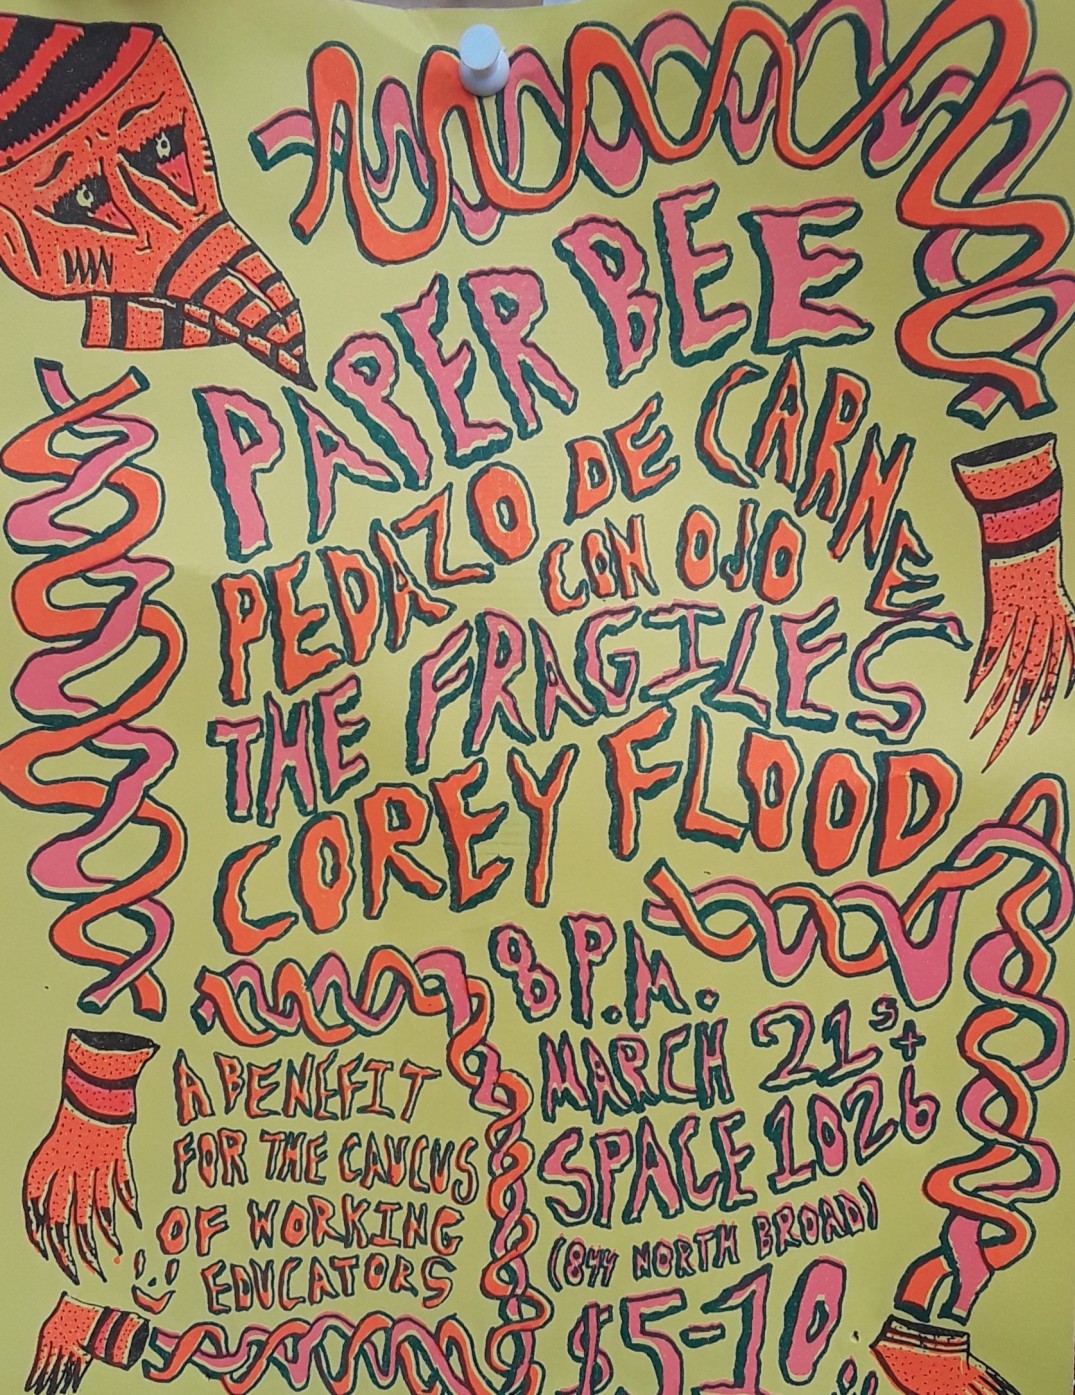 PAPER BEE
PEDAZO DE CARNE
CON OJO
THE FRAGILES
COREY FLOOD
8 P.M.
MARCH 21st
SPACE 1026
(844 NORTH BROAD)
$5-10
A BENEFIT
FOR THE CAUCUS
OF WORKING
EDUCATORS